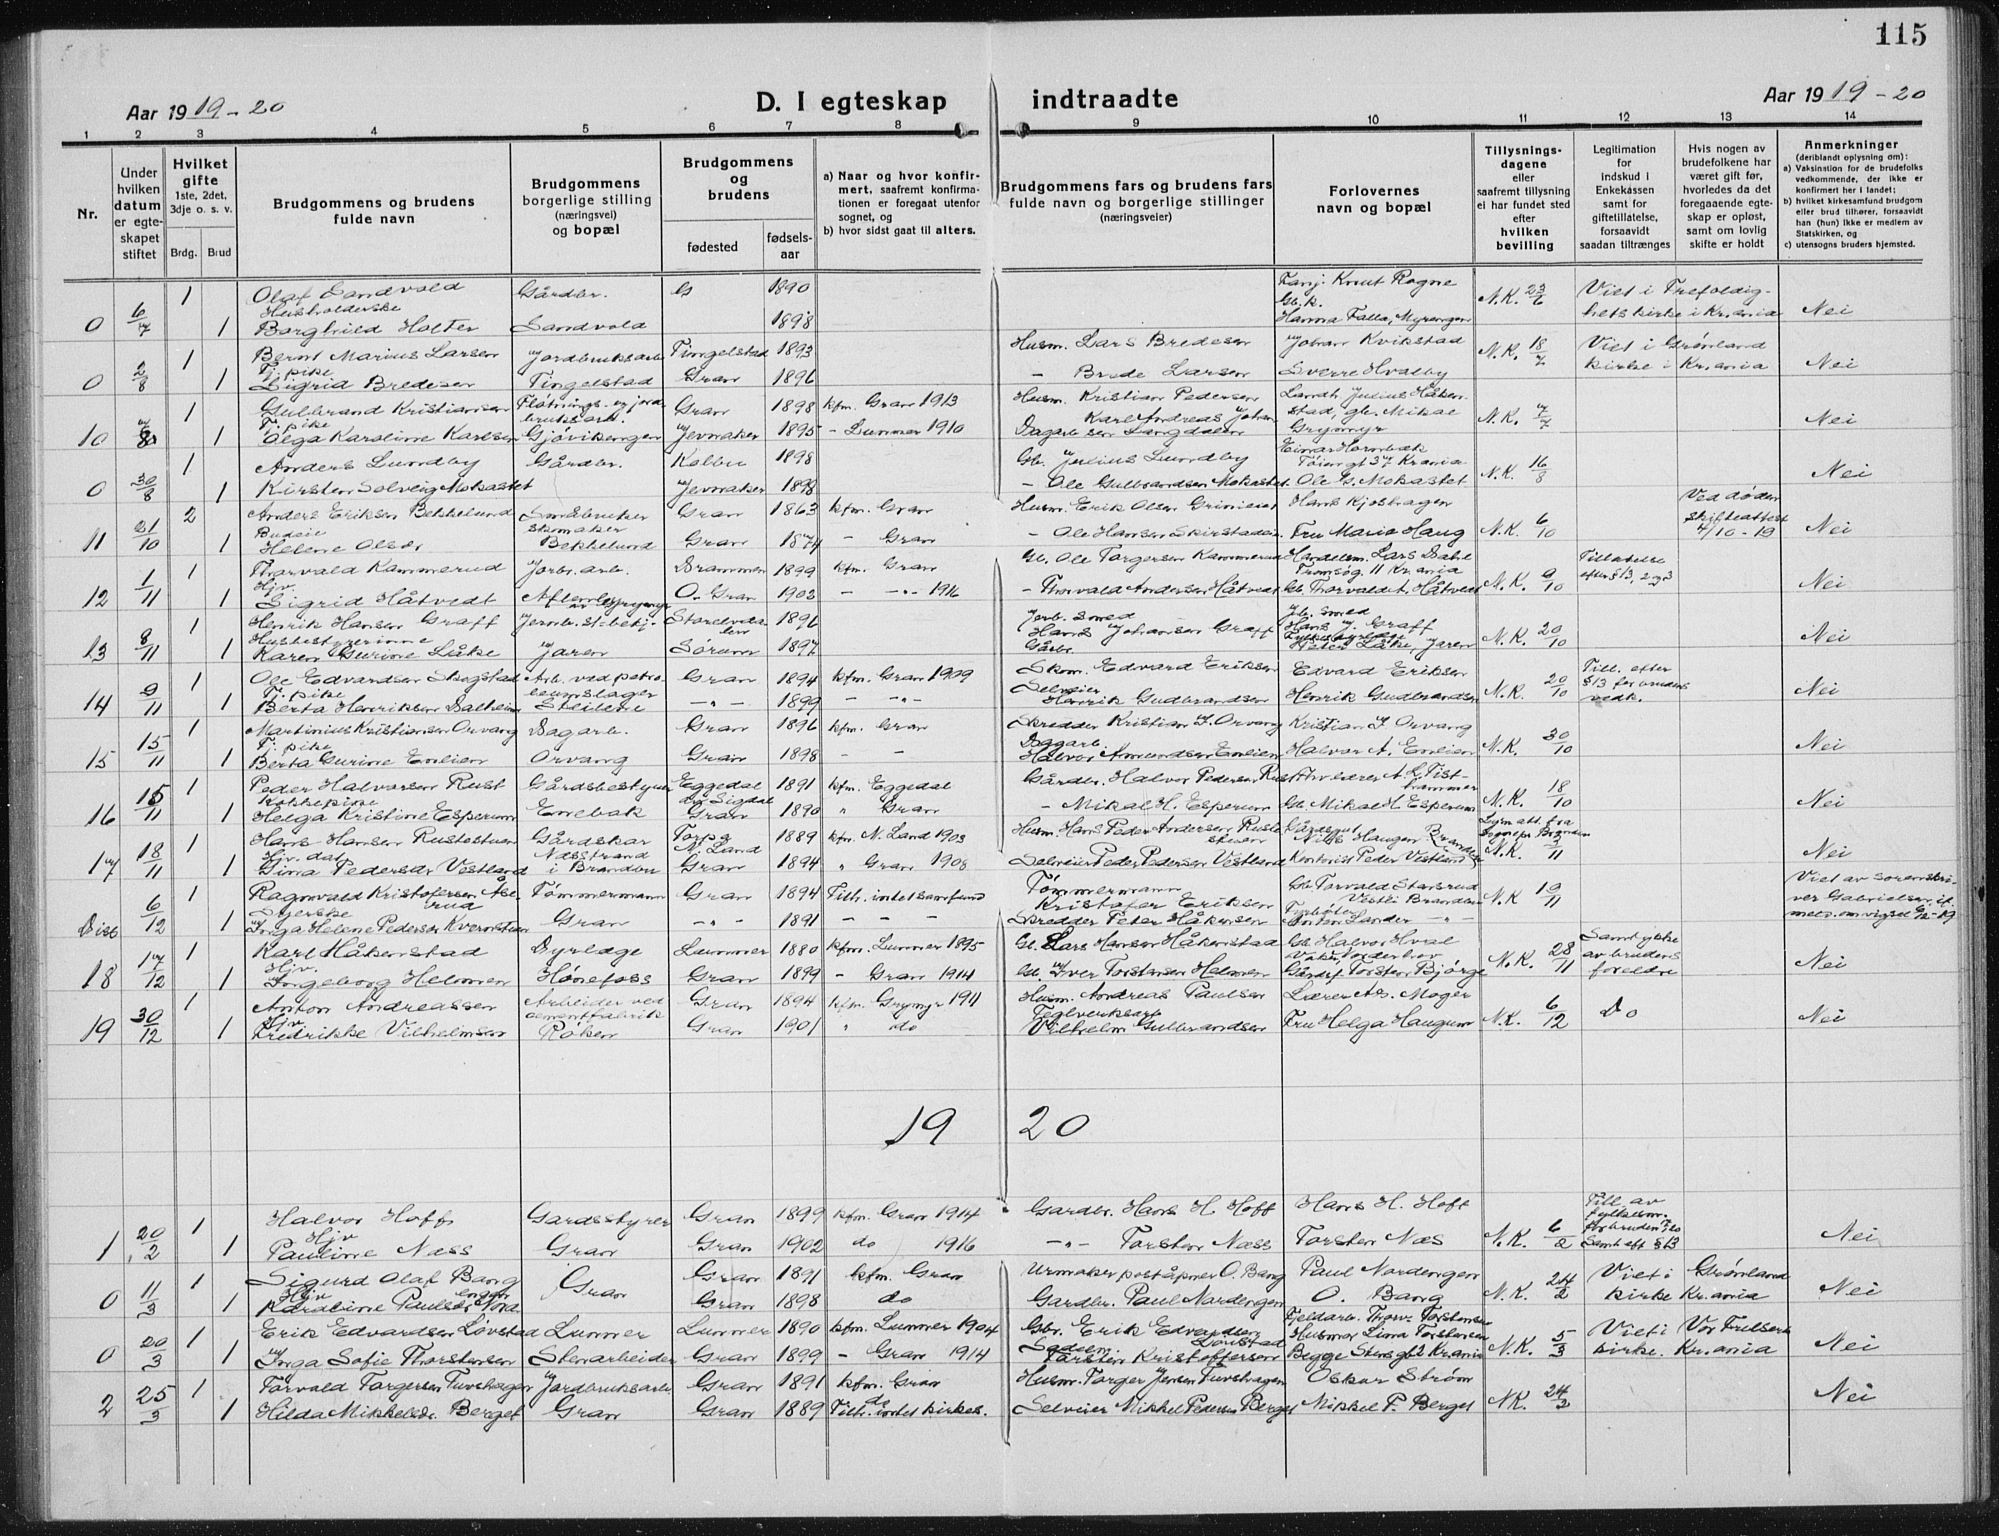 115
Aar 1919-20
D. I egteskap indtraadte
Aar 1919-20
1 2 3 4 5 6 7 8 9 10 11 12 13 14
Nr.
Under hvilken datum er egteskapet stiftet
Hvilket gifte 1ste, 2det, 3dje o. s. v.
Brdg. Brud
Brudgommens og brudens fulde navn
Brudgommens borgerlige stilling (næringsvei) og bopæl
Brudgommens og brudens
fødested
fødselsaar
a) Naar og hvor konfirmert, saafremt konfirmationen er foregaat utenfor sognet, og
b) hvor sidst gaat til alters.
Brudgommens fars og brudens fars fulde navn og borgerlige stillinger (næringsveier)
Forlovernes navn og bopæl
Tillysningsdagene eller saafremt tillysning ei har fundet sted efter hvilken bevilling
Legitimation for indskud i Enkekassen samt for giftetillatelse, forsaavidt saadan tiltrænges
Hvis nogen av brudefolkene har været gift før, hvorledes da det foregaaende egteskap er opløst, samt om lovlig skifte er holdt
Anmerkninger (deriblandt oplysning om):
a) Vaksination for de brudefolks vedkommende, der ikke er konfirmert her i landet;
b) hvilket kirkesamfund brudgom eller brud tilhører, forsaavidt han (hun) ikke er medlem av Statskirken, og
c) utensogns bruders hjemsted.
1 Olaf Sandvold Gårdbr. G 1890 Knut Rogne N.K. 23/6 Viet i Trefoldig-
0 6/7 1 Husholderske Borghild Holter Sandvold 1898 Hanna Falla, Myrengen hetskirke i Kr.ania Nei
1 Bernt Marius Larsen Jordbruksarb. Tingelstad 1893 Husm. Lars Bredesen Johan Kvikstad N.K. 18/7 Viet i Grønland
0 2/8 1 Tj. pike Sigrid Bredesen Tingelstad Gran 1896 - Brede Larsen Sverre Hvalby kirke i Kr.ania Nei
1 Gulbrand Kristiansen Fløtnings- og jordbruksarb. Gran 1898 kfm. Gran 1913 Husm. Kristian Pedersen Landh. Julius Håkenstad, gb. Mikal N.K. 7/7
10 1 Tj. pike Olga Karoline Karlsen Gjøvikengen Jevnaker 1895 - Lunner 1910 Dagarb. Karl Andreas Johansen Langdalen Grymyr Nei
1 Anders Lundby Gårdbr. Kolbu 1898 Gb. Julius Lundby Einar Hornbæk Tøiengt 37 Kr.ania N.K. 16/8
0 30/8 1 Kirsten Solveig Mokastet Jevnaker 1898 - Ole Gulbrandsen Mokastet Ole G. Mokastet Nei
2 Anders Eriksen Bekkelund Småbruker skomaker Gran 1863 kfm. Gran Husm. Erik Olsen Hans Kjoshagen N.K. 6/10 Ved døden
11 21/10 1 Budeie Helene Olsdr Bekkelund Gran 1874 - Gran - Ole Hansen Fru Marie Haug skifteattest 4/10-19 Nei
1 Thorvald Kammerud Jorbr. arb. Drammen 1899 kfm. Gran Gb. Ole Torgersen Kammerud Handelsm. Lars Dahl Tromsøg. 11 Kr.ania N.K. 9/10 Tillatelse efter § 13, 2 og 3
12 1/11 1 Hjv. Sigrid Håtvedt Ø. Gran 1903 - -"- 1916 - Thorvald Andersen Håtvedt Gb. Thorvald A. Håtvedt Nei
1 Henrik Hansen Graff Jernb. stebetj. Storelvdalen 1896 Jerb. smed Hans Johansen Graff Jb. smed Hans J. Graff N.K. 20/10
13 8/11 1 Husbestyrerinne Karen Gurine Låke Jaren Sørum 1897 Gårbr. Peter Låke, Jaren Nei
1 Ole Edvardsen Skogstad Arb. ved petroleumslager Gran 1894 kfm. Gran 1909 Skom. Edvard Eriksen Edvard Eriksen N.K. 20/10 Till. efter § 13 for brudens vedk.
14 9/11 1 Tj. pike Berta Henriksen Dalheim Steilene -"- 1899 - -"- Selveier Henrik Gudbrandsen Henrik Gudbrandsen Nei
1 Martinius Kristiansen Orvang Dagarb. Gran 1896 kfm. Gran Skredder Kristian J. Orvang Kristian J. Orvang N.K. 30/10
15 15/11 1 Tj. pike Berta Gurine Enlien Orvang Gran 1898 - - Dagarb. Halvor Amundsen Enlien Halvor A. Enlien Nei
1 Peder Halvorsen Rust Gårdsbestyrer Eggedal og Sigdal 1891 kfm. Eggedal Gårdbr. Halvor Pedersen Rust N.K. 18/10
16 15/11 1 Kokkepike Helga Kristine Esperum Enebak Gran 1890 " Gran - Mikal H. Esperum Gb. Mikal H. Esperum Nei
1 Hans Hansen Rustestuen Gårdskar Torpa N. Land 1889 kfm. N. Land 1903 Husm. Hans Peder Andersen Rustestuen Gårdsgut Nils Haugen Brandbu Lysn. att. fra Sognepr. Brandbu N.K. 2/11
17 18/11 1 Hjv. dat. Gina Pedersdr Vestland Næsstrand i Brandbu Gran 1894 " Gran 1908 Selveier Peder Pedersen Vestland Kontorist Peder Vestland Nei
1 Ragnvald Kristofersen Åserud Tømmermann Gran 1894 Tilh. intet samfund Tømmermann Kristofer Eriksen Gb. Torvald Stensrud Vestli Brandbu N.K 19/11 Viet av sorenskriver Gabrielsen
Diss 6/12 1 Syerske Inga Helene Pedersdr Kvernstuen Gran -"- 1891 - - - Skredder Peter Håkensen
1 Karl Håkenstad Dyrlæge Lunner 1880 kfm. Lunner 1895 Gb. Lars Hansen Håkenstad Gb. Halvor Hval N.K. 28/11 Samtykke av brudens foreldre
18 17/12 1 Hjv. Ingeborg Helmen Hønefoss Gran 1899 - Gran 1914 Gb. Iver Torstensen Helmen Torsten Bjørge Nei
1 Anton Andreassen Arbeider ved cementfabrik Gran 1894 kfm. Grymyr 1911 Husm. Andreas Paulsen Lærer As. Moger N.K. 6/12 Do
19 30/12 1 Hjv. Fredrikke Vilhelmsen Røken Gran 1901 " do Teglverksarb. Vilhelm Gulbrandsen Fru Helga Haugum Nei
19 20
1 Halvor Hoff Gardsstyrer Gran 1899 kfm. Gran 1914 Gardbr. Hans H. Hoff Hans H. Hoff N.K. 6/2 Till. av fylkesm.
1 20/2 1 Hjv Pauline Næss Gran Gran 1902 do 1916 -"- Torsten Næss Torsten Næs Samt. eft § 13 Nei
1 Sigurd Olaf Bang Gran 1891 kfm. Gran Urmaker poståpner O. Bang Paul Nordengen N.K. 24/2 Viet i Grønland
0 11/3 1 Hjv Karoline Paulsdr Nordengen Gran 1898 do Gardbr. Paul Nordengen O. Bang kirke Kr.ania Nei
1 Erik Edvardsen Løvstad Lunner Lunner 1890 kfm. Lunner 1904 Gbr. Erik Edvardsen Løvstad N.K. 5/3 Viet i Vor Frelsers
0 20/3 1 Inga Sofie Thorstensen Stenarbeider Gran 1899 - Gran 1914 Torsten Kristoffersen Begge Stensgt 2 Kr.ania kirke. Kr.ania Nei
1 Torvald Torgersen Tuvshagen Jordbruksarb. Gran 1891 kfm. Gran Husm. Torger Jensen Tuvshagen Oskar Strøm N.K. 24/3
2 25/3 1 Hilda Mikkelsdr. Berget Gran Gran 1889 do Tilh. intet kirkes. Selveier Mikkel Pedersen Berget Mikkel P. Berget Nei